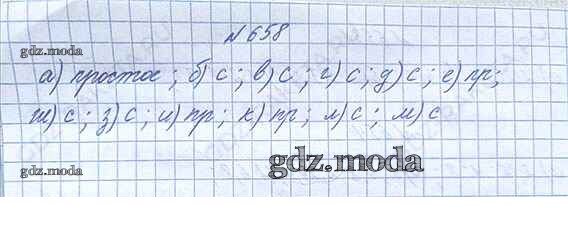 №658
gdz.moda
а) простое; б) с; в) с; г) с; д) с; е) пр;
ж) с; з) с; и) пр; к) пр; л) с; м) с
gdz.moda
gdz.moda